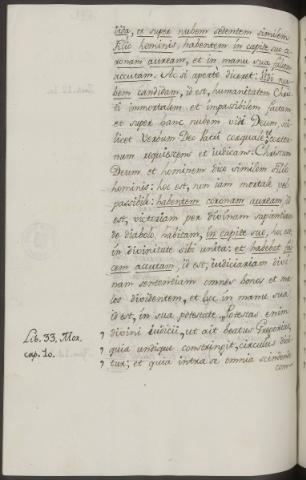 dida, et super nubem sedentem similem
Filio hominis, habentem in capite suo co-
ronam auream, et in manu sua falcem
accutam. Ac si apertè diceret: Vidi nu-
bem candidam, id est, humanitatem Chris-
ti immortalem et impassibilem factam
et super hanc nubem vidi Deum, sci-
licet Verbum Dei Patri coequale, coæter-
num requiescens et iudicans: Christum
Deum et hominem dico similem Filio
hominis: hoc est, non iam mortale vel
passibile: habentem coronam auream, id
est, victoriam per divinam sapientiam
de diabolo habitam, in capite suo, hoc est,
in divinitate sibi unita: et habebat fal-
cem accutam, id est, iudiciariam divi-
nam sententiam omnes bonos et ma-
los dividentem, et hoc in manu sua,
id est, in sua potestate. Potestas enim
Lib. 33. Mor.
cap. 10.
divini iudicii, ut ait beatus Gregorius,
quia undique constringit, circulus dici-
tur; et quia intra se omnia scindendo
com-